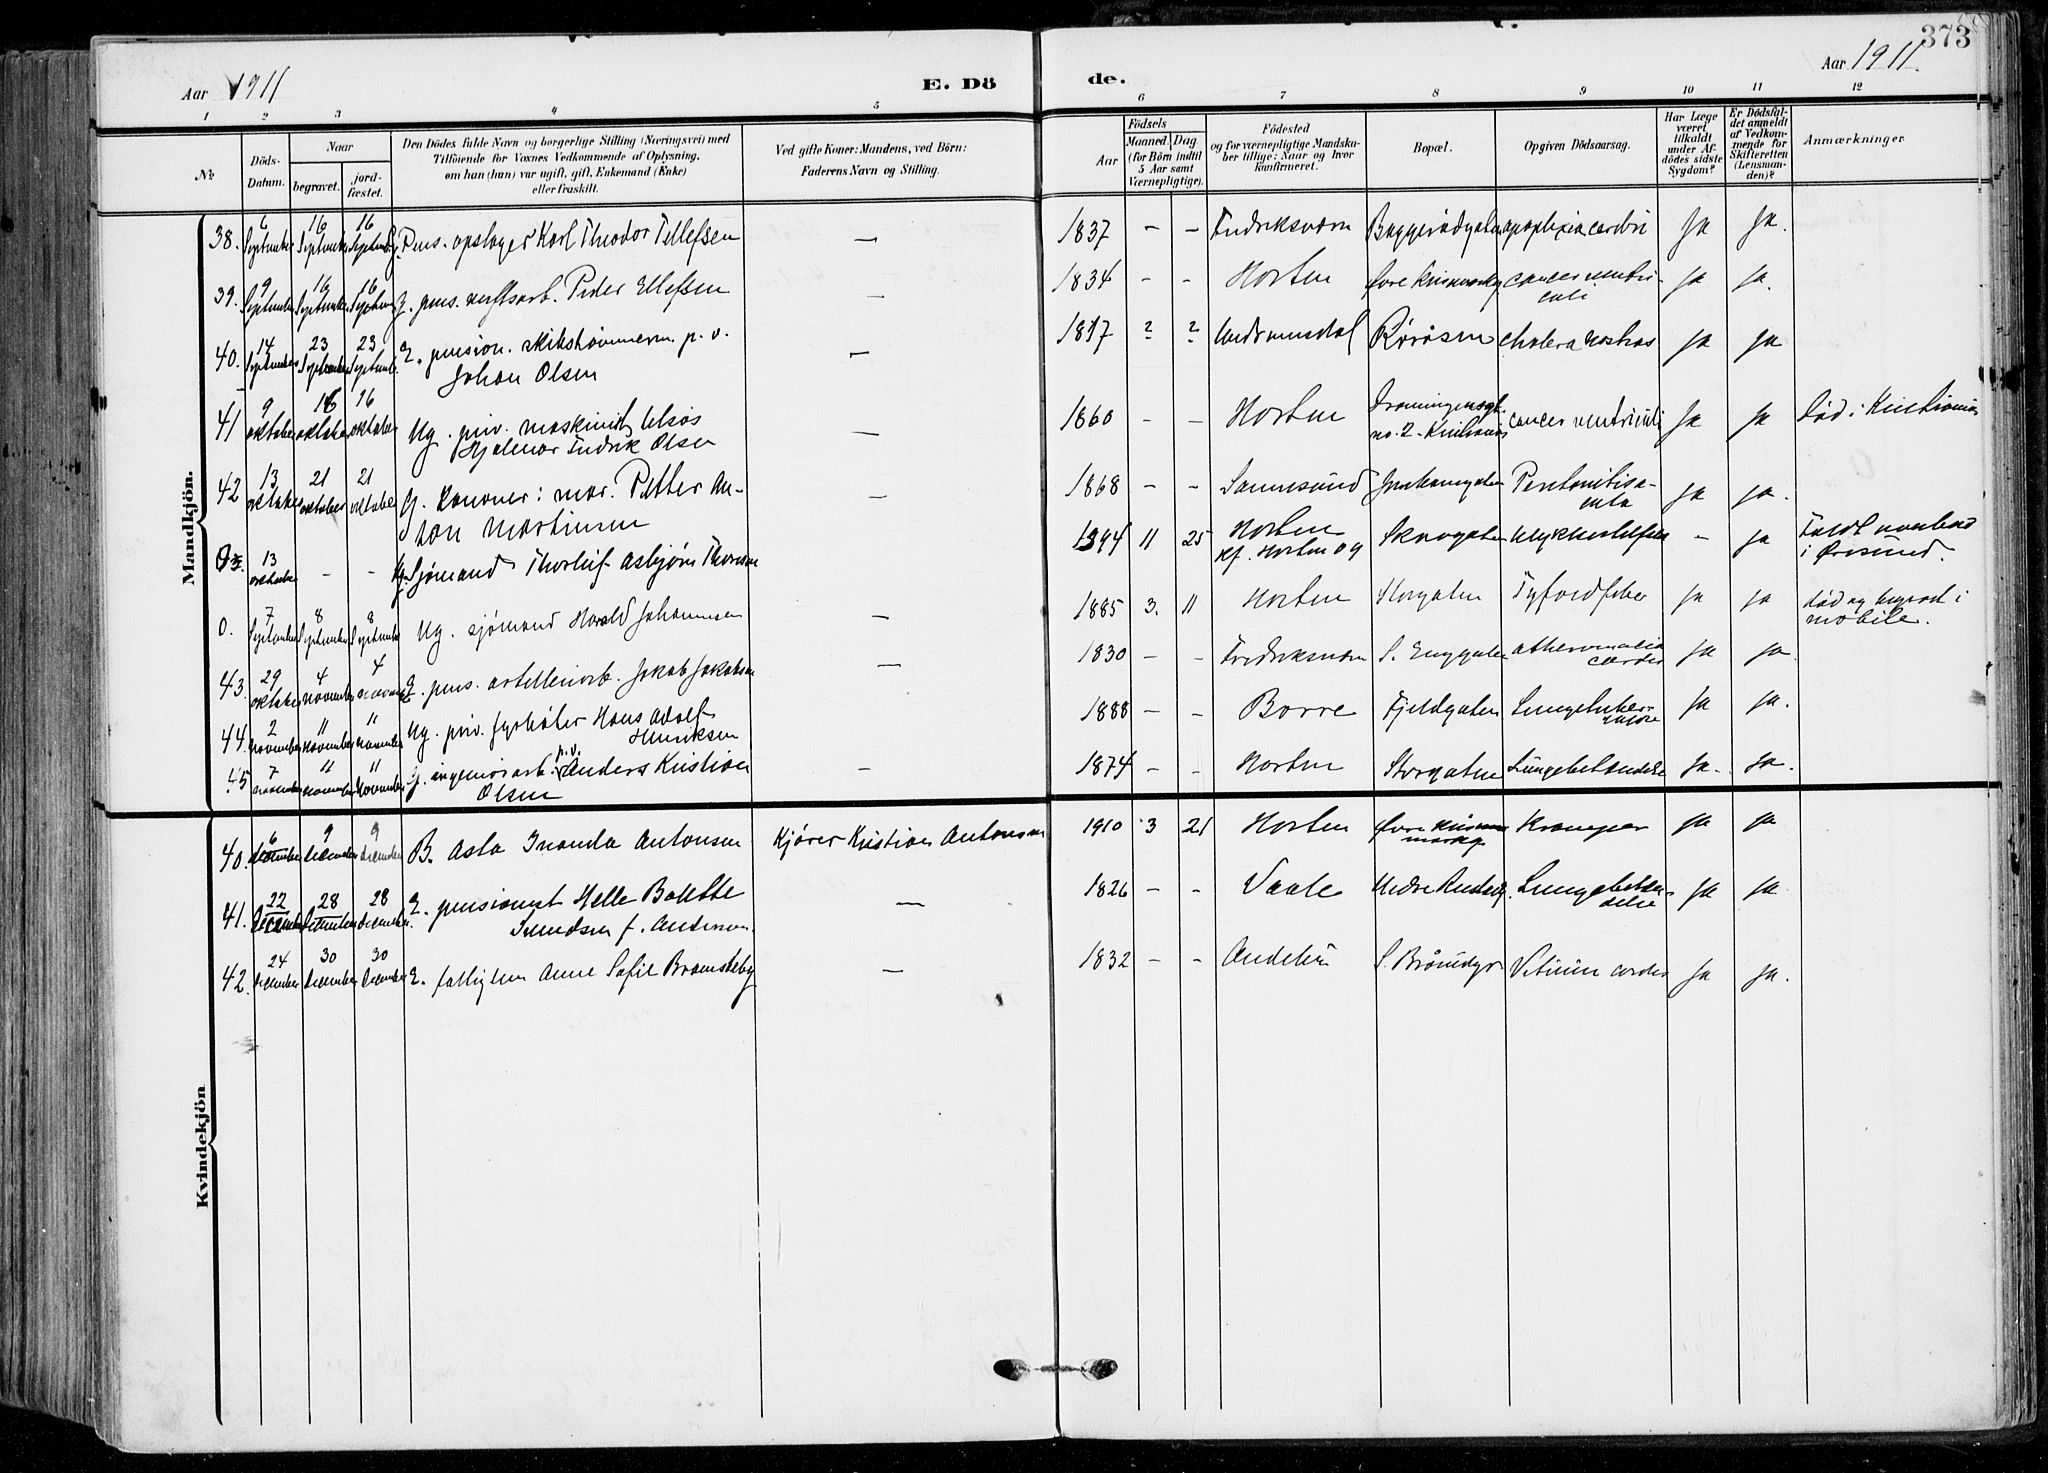 373
Aar 1911
E. Dö
de.
Aar 1911.
1 2 3 4 5 6 7 8 9 10 11 12
No
Döds-Datum.
Naar
begravet.
jord-fæstet.
Den Dödes fulde Navn og borgerlige Stilling (Næringsvei) med
Tilföiende for Voxnes Vedkommende af Oplysning,
om han (hun) var ugift, gift, Enkemand (Enke)
eller fraskilt.
Ved gifte Koner: Mandens, ved Börn:
Faderens Navn og Stilling.
Aar
Födsels
Maaned Dag
(for Börn indtil
5 Aar samt
Værnepligtige).
Födested
og for værnepligtige Mandska-
ber tillige: Naar og hvor
konfirmeret.
Bopæl.
Opgiven Dödsaarsag.
Har Læge
været
tilkaldt
under Af-
dödes sidste
Sygdom?
Er Dödsfal-
det anmeldt
af Vedkom-
mende for
Skifteretten
(Lensman-
den)?
Anmærkninger
Mandkjön.
38. 6 September 16 September 16 September Pens. opslager Karl Theodor Tellefsen — 1837 – – Fredriksværn apoplexia cerebri Ja Ja.
39. 9 September 16 September 16 September G. pens. verftsarb. Peder Ellefsen — 1834 – – Horten cancer ventri-
culi Ja Ja.
40. 14 September 23 September 23 September E. pension. p. v.
Johan Olsen — 1817 ? ? Røråsen cholera nostras Ja Ja
41 9 oktober 16 oktober 16 oktober Ug. priv. maskinist
Hjalmar Fredrik Olsen — 1860 – – Horten Dronningensgt.
no. 2 - Kristiania cancer ventriculi Ja Ja død i Kristiania
42 13 oktober 21 oktober 21 oktober G. kanoner i mar. Petter An-
ton Martinsen — 1868 – – Sannesund Peritonitis a-
cuta Ja Ja.
13 oktober – – Ug. Sjømand Thorleif Asbjørn 1894 11 25 Horten
kf. Horten 09 Skovgaten Ulykkestilfælde – Ja Faldt overbord
i Øresund.
0. 7 September 8 September 8 September Ug. sjømand Harald Johannesen — 1885 3. 11 Horten Storgaten Tyfoidfeber Ja Ja død og begravet i
mobile.
43. 29 oktober 4 november 4 november E. pens. artilleriarb. Jakob Jakobsen — 1830 – – Fredriksværn S. Enggaten Ja Ja
44. 2 november 11 november 11 november Ug. priv. fyrbøter Hans Adolf
Henriksen 1888 – – Borre Fjeldgaten Lungetuber-
kulose Ja Ja.
45 7 november 11 november 11 november G. ingeniørarb. p.v. Anders Kristian
Olsen — 1874 – – Horten Storgaten Lungebetændelse Ja. Ja.
Kvindekjön
40. 6 december 9 december 9 december B. Asta Antonsen Kjører Kristian Antonsen 1910 3 21 Horten Øvre Keisemarkg. Kramper Ja Ja
41. 22 December 28 December 28 december E. pensionist Helle Bolette
f. Andersen. — 1826 – – Vaale Lungebetæn-
delse Ja Ja
42. 24 december 30 December 30 December E. fattiglem Anne Sofie Bromsteby — 1832 – – Andebu Vitium cordis Ja Ja.